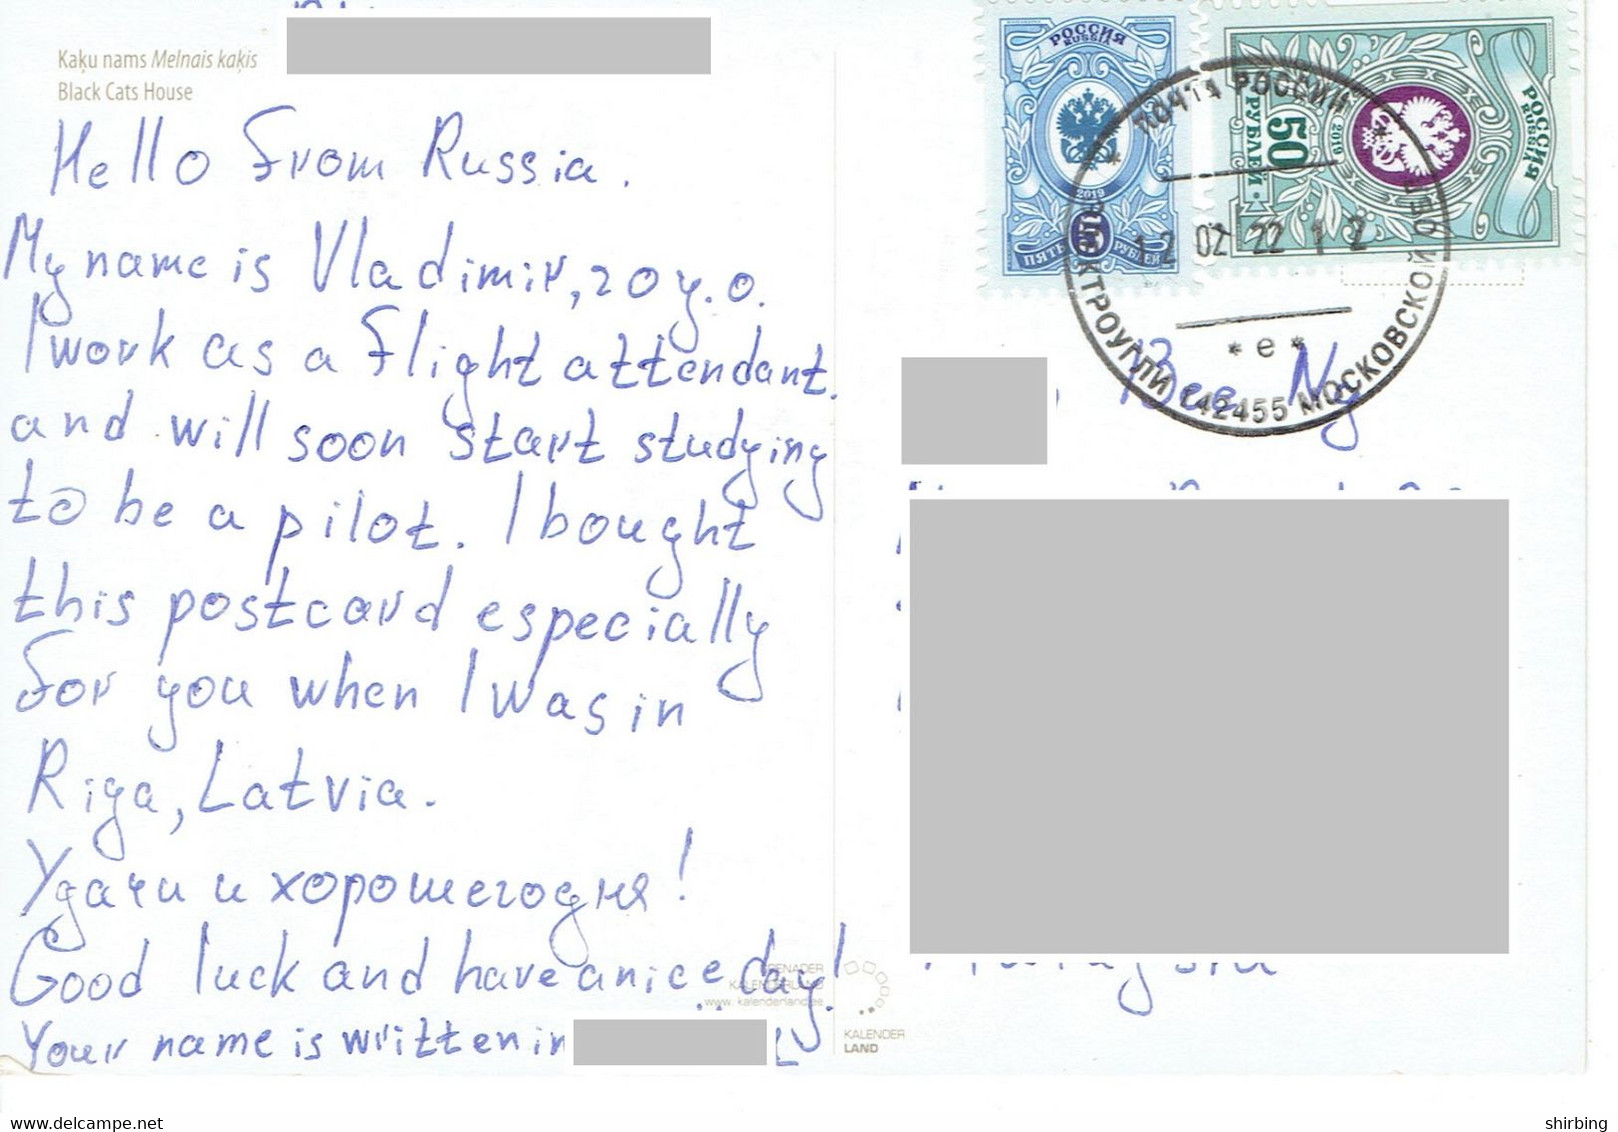 Kaķu nams Melnais kaķis
Black Cats House
Hello from Russia.
My name is Vladimir, 20 y.o.
I work as a flight attendant.
and will soon start studying
to be a pilot. I bought
this postcard especially
for you when I was in
Riga, Latvia.
Удачи и хорошего дня!
Good luck and have a nice day!
Your name is written in
GRENADER
KALENDERLAND
www.kalenderland.ee
KALENDER
LAND
РОССИЯ
RUSSIA
2019
ПЯТЬ РУБЛЕЙ
РОССИЯ
RUSSIA
2019
50
РУБЛЕЙ
ПОЧТА РОССИИ
12 02 22 12
* е *
142455 МОСКОВСКОЙ
Bee Ng
shirbing